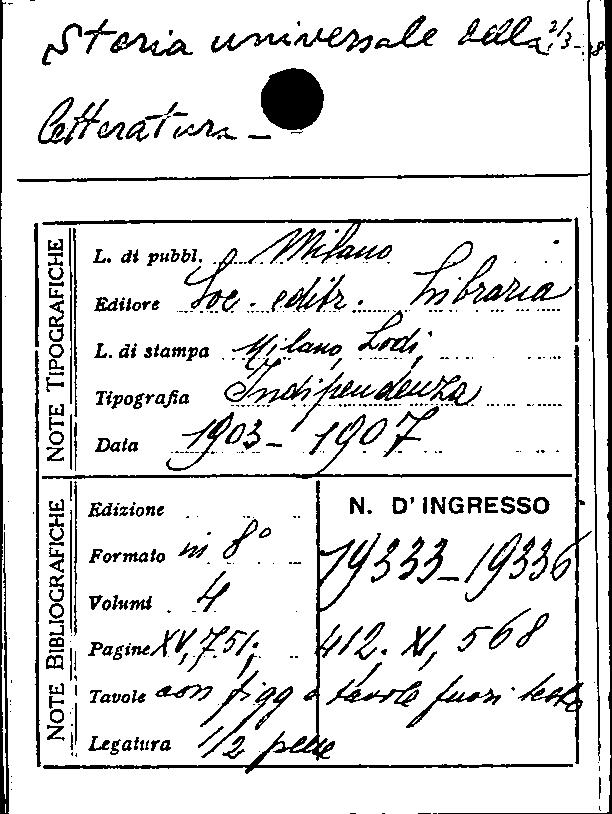 Storia universale della
letteratura -
NOTE TIPOGRAFICHE
L. di pubbl. Milano
Editore Soc. editr. Libraria
L. di stampa Milano, Lodi,
Tipografia Indipendenza
Data 1903 - 1907
NOTE BIBLIOGRAFICHE
Edizione
N. D'INGRESSO
Formato in 8°
19333-19336
Volumi 4
Pagine XV, 751; 412. XI, 568
Tavole con figg e tavole fuori testo
Legatura 1/2 pelle